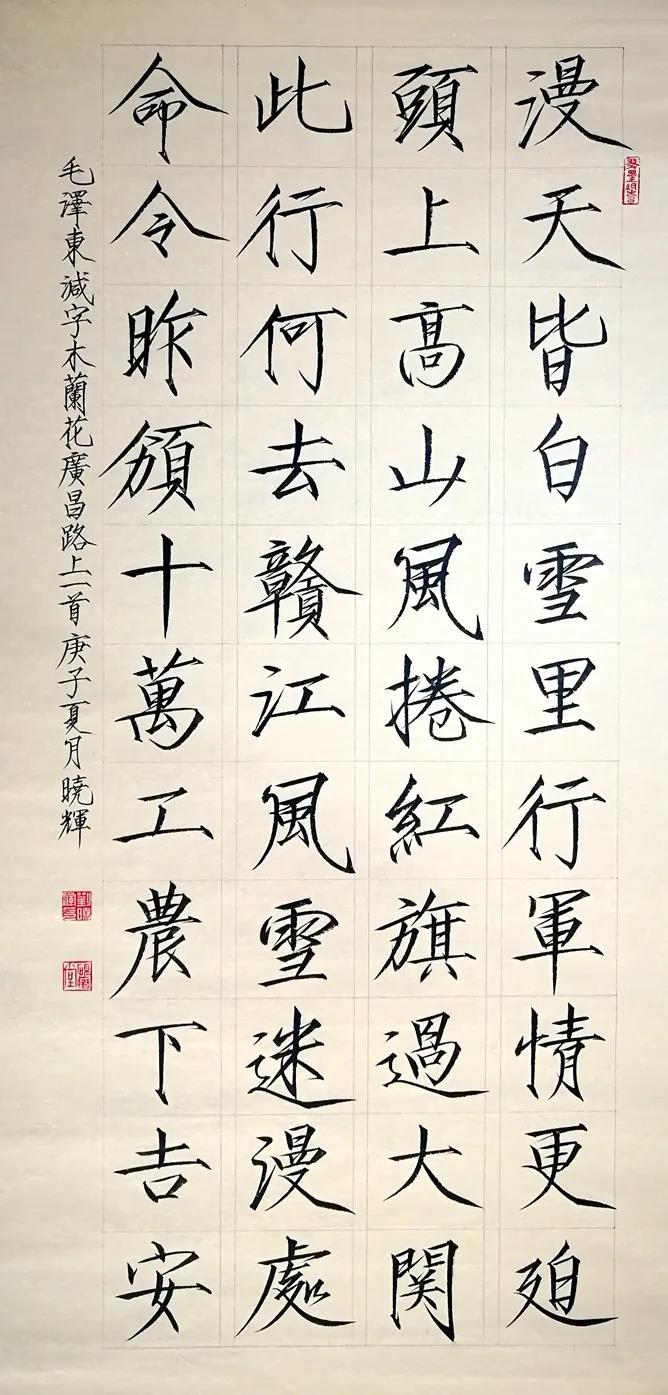 漫天皆白雪里行軍情更迫
頭上高山風捲紅旗過大関
此行何去贛江風雪迷漫處
命令昨頒十萬工農下吉安
毛澤東減字木蘭花廣昌路上一首庚子夏月曉輝